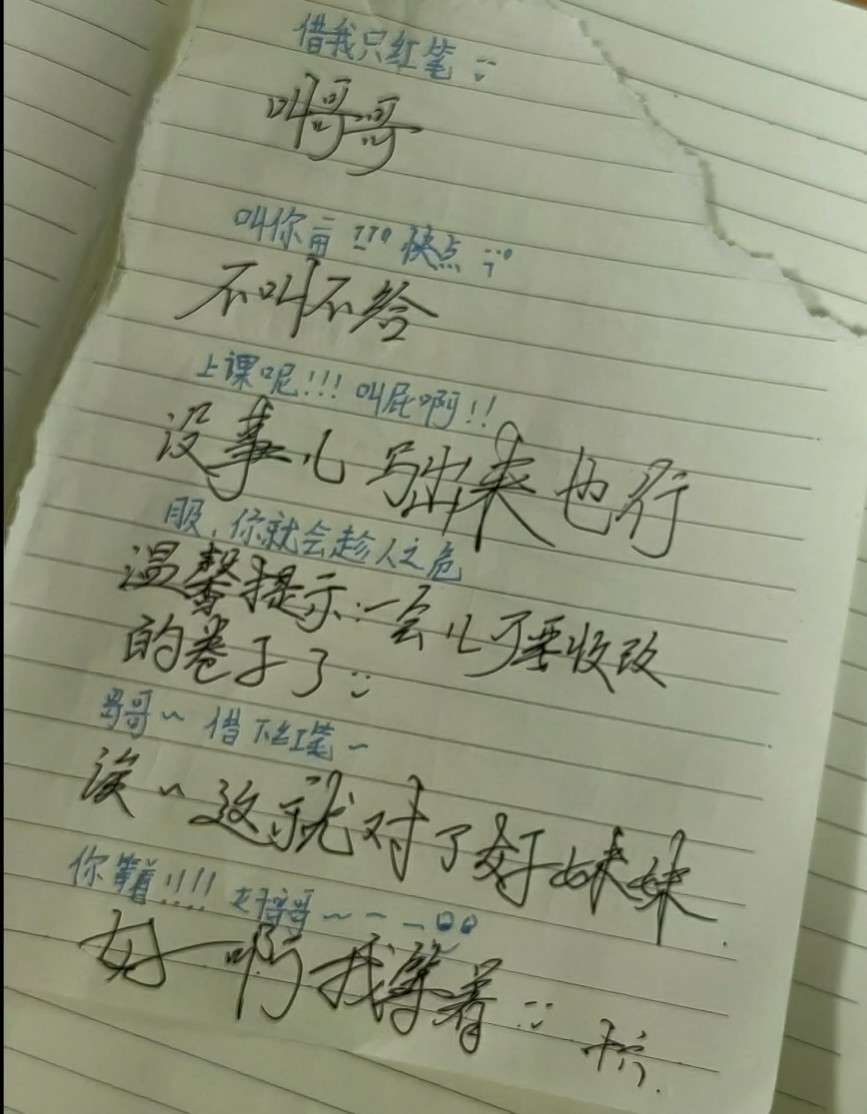 借我只红笔
叫哥哥
叫你二 ??? 快点
不叫不给
上课呢!!! 叫屁啊!!
没事儿 写出来也行
服,你就会趁人之危
温馨提示:一会儿可要收改
的卷子了
哥哥~ 借下红笔~
诶~这就对了好妹妹
你等着!!!! 好哥哥~~~
好啊我等着